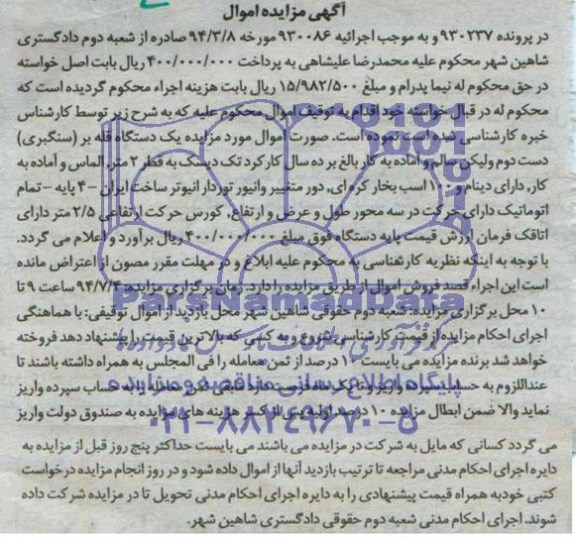 آگهی مزایده اموال
در پرونده ۹۳۰۲۳۷ و به موجب اجرائیه ۹۳۰۰۸۶ مورخه ۹۴/۳/۸ صادره از شعبه دوم دادگستری
شاهین شهر محکوم علیه محمدرضا علیشاهی به پرداخت ۴۰۰/۰۰۰/۰۰۰ ریال بابت اصل خواسته
در حق محکوم له نیما پدرام و مبلغ ۱۵/۹۸۲/۵۰۰ ریال بابت هزینه اجراء محکوم گردیده است که
محکوم له در قبال خواسته خود اقدام به توقیف اموال محکوم علیه که به شرح زیر توسط کارشناس
خبره کارشناسی شده است نموده است. صورت اموال مورد مزایده یک دستگاه قله بر (سنگبری)
دست دوم ولیکن سالم و آماده به کار بالغ بر ده سال کارکرد تک دیسک به قطر ۲ متر الماس و آماده به
کار، دارای دینام و ۱۰۰ اسب بخار کره ای، دور متغییر وانیور توردار انیوتر ساخت ایران - ۴ پایه - تمام
اتوماتیک دارای حرکت در سه محور طول و عرض و ارتفاع، کورس حرکت ارتفاعی ۲/۵ متر دارای
اتاقک فرمان ارزش قیمت پایه دستگاه فوق مبلغ ۴۰۰/۰۰۰/۰۰۰ ریال براورد و اعلام می گردد.
با توجه به اینکه نظریه کارشناسی به محکوم علیه ابلاغ و در مهلت مقرر مصون از اعتراض مانده
است این اجراء قصد فروش اموال از طریق مزایده را دارد. زمان برگزاری مزایده: ۹۴/۷/۴ ساعت ۹ تا
۱۰ محل برگزاری مزایده: شعبه دوم حقوقی شاهین شهر محل بازدید از اموال توقیفی: با هماهنگی
اجرای احکام مزایده از قیمت کارشناسی شروع و به کسی که بالاترین قیمت را پیشنهاد دهد فروخته
خواهد شد برنده مزایده می بایست ۱۰ درصد از ثمن معامله را فی المجلس به همراه داشته باشند تا
عنداللزوم به حساب سپرده واریز و تا یک ماه فرصت دارد مابقی ثمن معامله را به حساب سپرده واریز
نماید والا ضمن ابطال مزایده ۱۰ درصد اولیه پس از کسر هزینه های مزایده به صندوق دولت واریز
می گردد کسانی که مایل به شرکت در مزایده می باشند می بایست حداکثر پنج روز قبل از مزایده به
دایره اجرای احکام مدنی مراجعه تا ترتیب بازدید آنها از اموال داده شود و در روز انجام مزایده درخواست
کتبی خود به همراه قیمت پیشنهادی را به دایره اجرای احکام مدنی تحویل تا در مزایده شرکت داده
شوند. اجرای احکام مدنی شعبه دوم حقوقی دادگستری شاهین شهر.
ParsNamadData
پایگاه اطلاع رسانی مناقصه و مزایده
۰۲۱-۸۸۳۴۹۶۷۰-۵